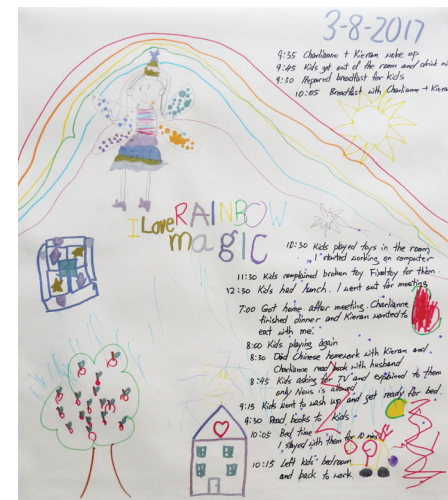 3-8-2017
9:35 Charlianne + Kieran wake up
9:45 Kids got out of the room and drink
9:50 Prepared breakfast for kids
10:05 Breakfast with Charlianne + Kieran
I Love RAINBOW
magic
10:30 Kids played toys in the room,
I started working on computer
11:30 Kids complained broken toy. Fix toy for them.
12:30 Kids had lunch. I went out for meeting
7:00 Got home after meeting. Charlianne
finished dinner and Kieran wanted to
eat with me.
8:00 Kids playing again
8:30 Did Chinese homework with Kieran and
Charlianne read book with husband
8:45 Kids asking for TV and explained to them
only News is allowed
9:15 Kids went to wash up and get ready for bed.
9:30 Read books to kids
10:05 Bed time
I stayed with them for 10 mins
10:15 Left kids' bedroom
and back to work.